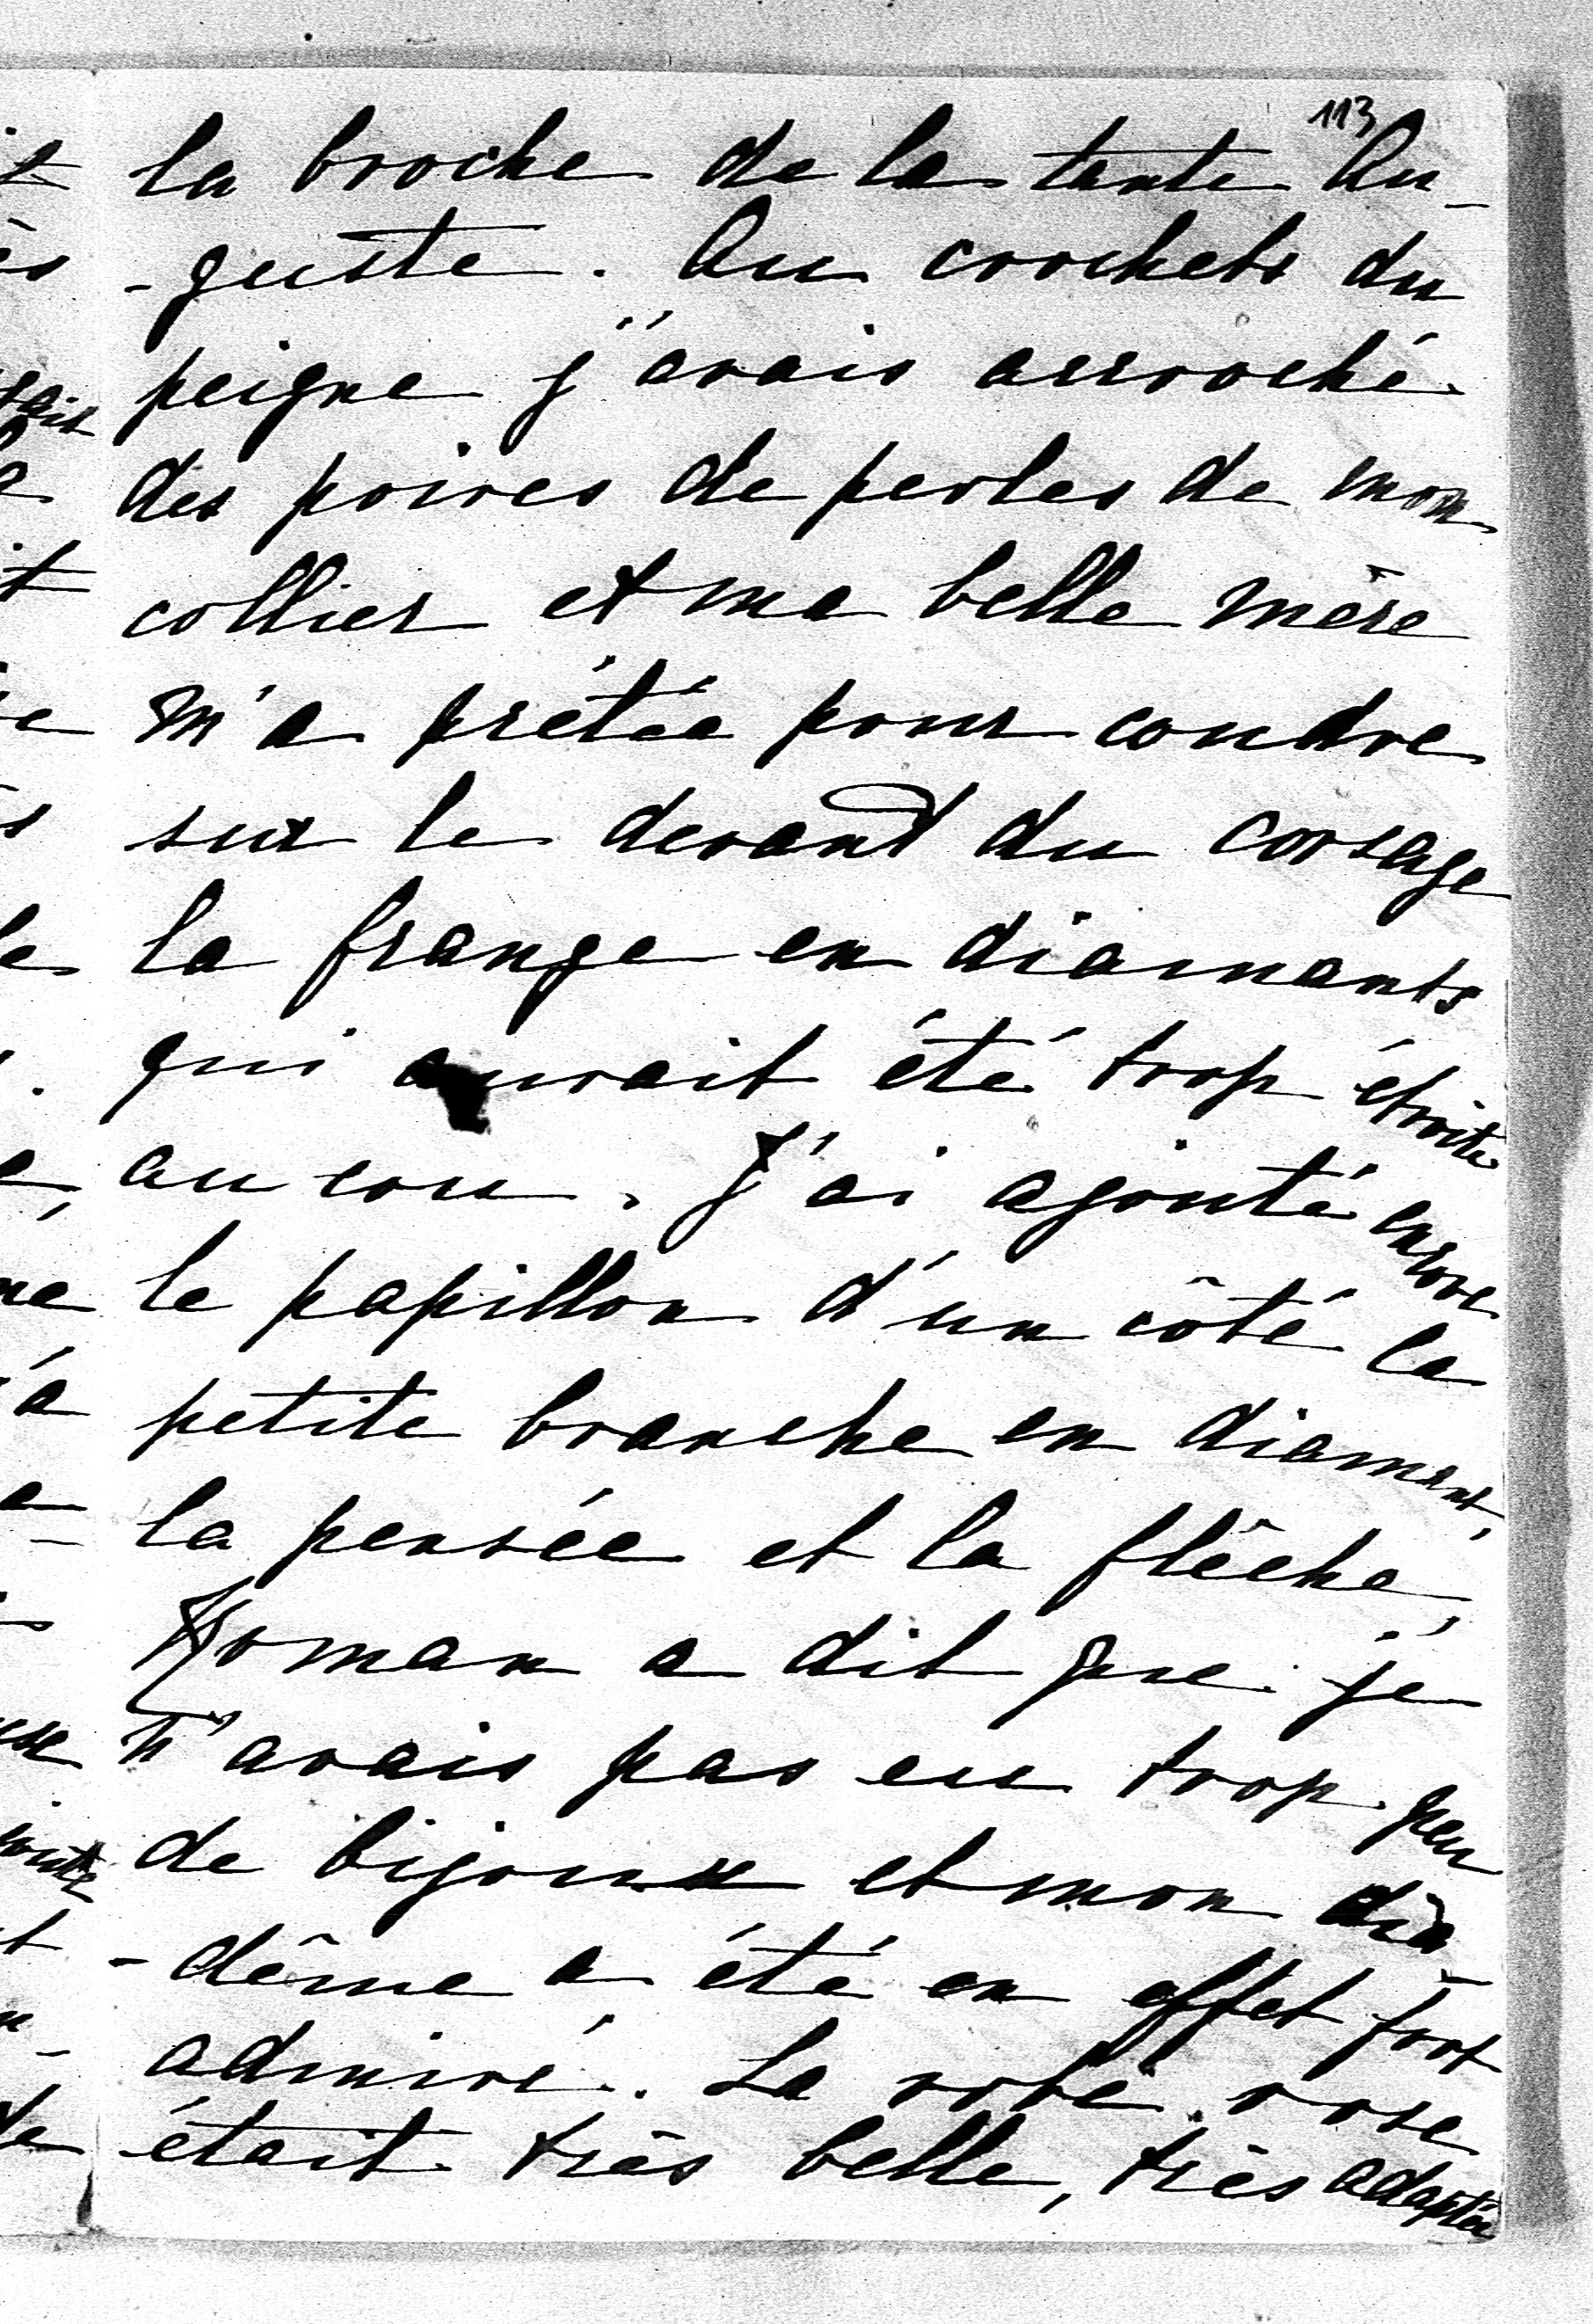 113
la broche de la tante Au-
-guste. Au crochets du
peigne j'avais accroché
des poires de perles de mon
collier et ma belle mère
m'a prêtée pour coudre
sur le devant du corsage
la frange en diamants
qui aurait été trop étroite
au cou. J'ai ajouté encore
le papillon d'un côté la
petite branche en diamant,
la pensée et la flèche,
Roman a dit que je
n'avais pas eu trop peu
de bijoux et mon dia-
-dême a été en effet fort
admiré. La robe rose
était très belle, très adaptée